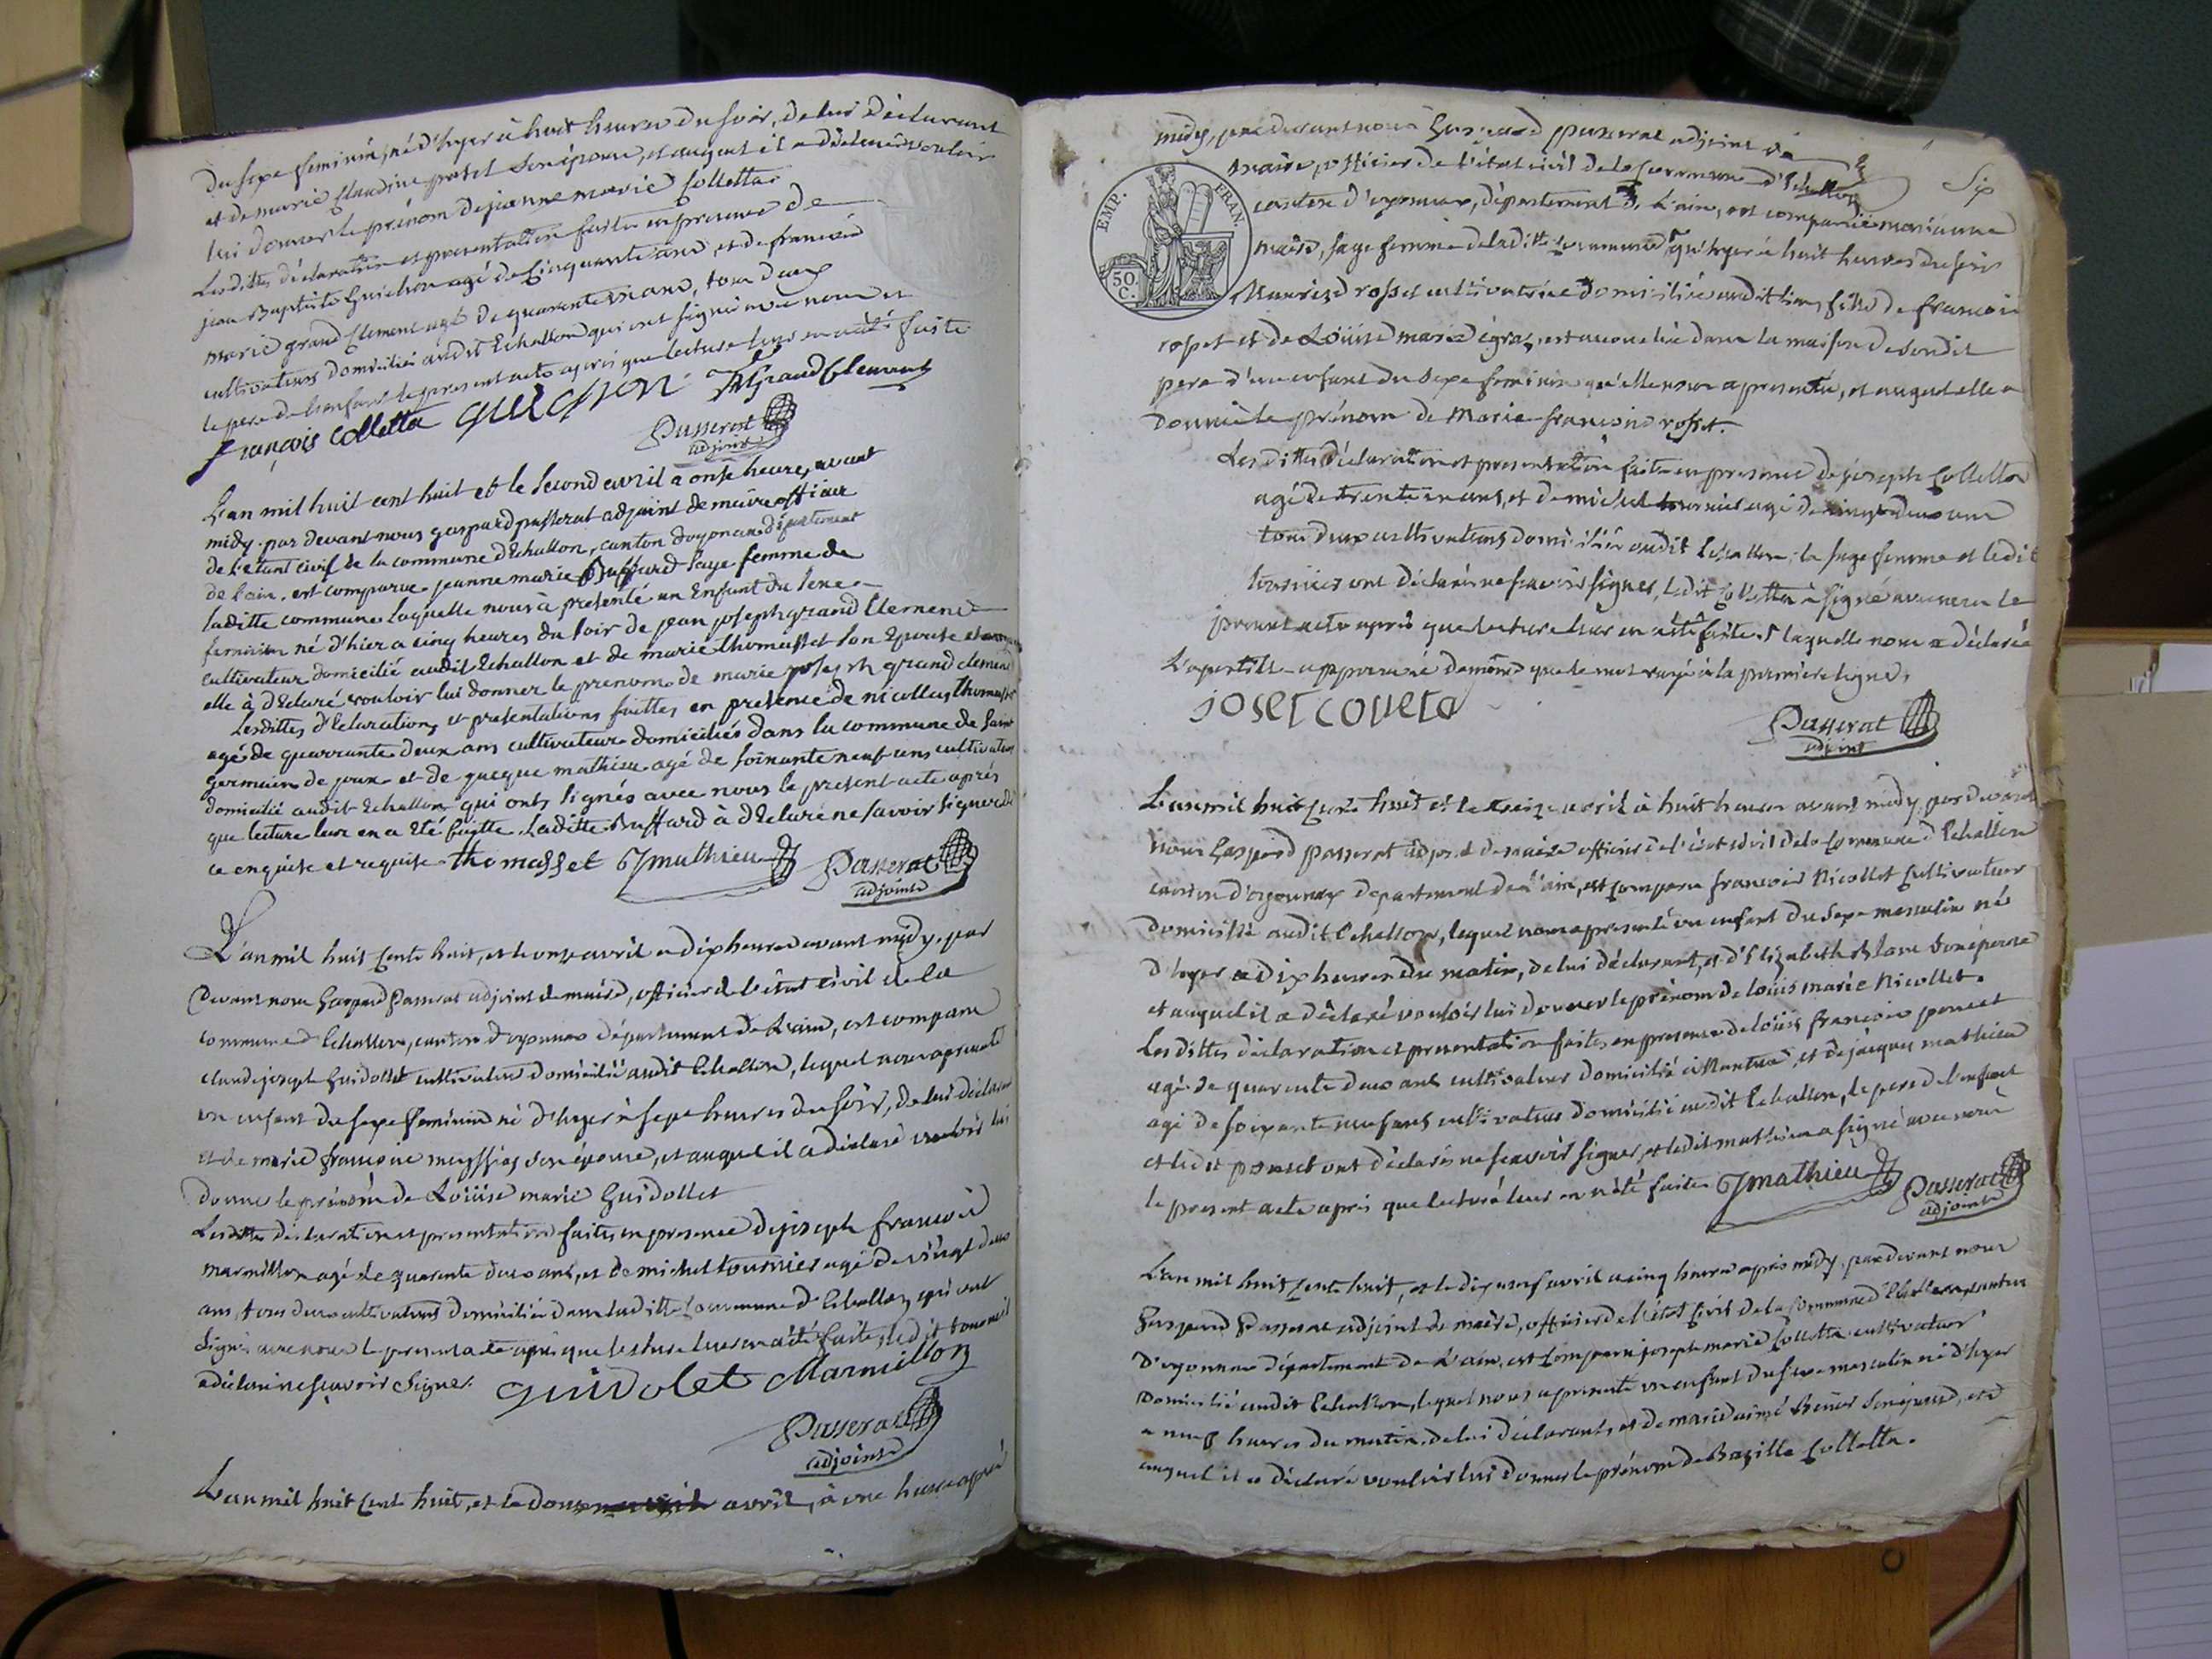 du sexe feminin, né d'hyer à huit heures du soir, de lui déclarant
et de marie Claudine son épouse, et auquel il a déclaré vouloir
lui donner le prénom de jeanne marie Colletta
Lesdittes déclaration et presentation faites en presence de
jean Baptiste Guichon agé de Cinquante ans, et de francois
marie grand Clement agé de quarante ans, tous deux
cultivateurs domiciliés audit Echallon qui ont signé avec nous et
le pere de l'enfant le present acte apres que lecture leur en a été faite
françois Colletta GUICHON grand Clement
Passerat
adjoint
L'an mil huit cent huit et le second avril a onse heures avant
midy. par devant nous gaspard passerat adjoint de maire officier
de l'etant civil de la commune d'Echallon, canton doyonnax département
de l'ain. est comparue jeanne marie Buffard sage femme de
laditte commune laquelle nous à presenté un Enfant du sexe
feminin né d'hier a cinq heures du soir de jean joseph grand Clement
cultivateur domicilié audit Echallon et de marie thomasset son Epouse et
elle à d'Eclaré vouloir lui donner le prenom de marie joseph grand clement
Lesdittes d'Eclarations et presentations faittes en présence de nicollas thomasset
agé de quarrante deux ans cultivateur domiciliés dans la commune de Saint
germain de joux et de jacque mathieu agé de soixante neuf ans cultivateur
domicilié audit Echallon qui onts signés avec nous le présent acte aprés
que lecture leur en a Eté faitte. Laditte Buffard à d'Eclaré ne savoir signer de
ce enquise et requise thomasset Jmathieu Passerat
adjoint
L'an mil huit Cent huit, et le onze avril a dix heures avant midy, par
Devant nous Gaspard Passerat adjoint de maire, officier de l'état Civil de la
commune d'Echallon, canton d'oyonnax département de L'ain, est comparu
claude joseph Guidollet cultivateur domicilié audit Echallon, lequel nous a presenté
un enfant du sexe feminin né d'hyer à sept heures du soir, de lui déclarant
et de marie francoise son épouse, et auquel il a déclaré vouloir lui
donner le prénom de Loüise marie Guidollet
Lesdittes déclaration et presentation faites en presence de joseph francois
marmillon agé de quarente deux ans, et de michel tournier agé de vingt deux
ans, tous deux cultivateurs domiciliés dans laditte Commune d'Echallon, qui ont
signé avec nous le present acte apres que lecture leur en a été faite, ledit tournier
a déclaré ne scavoir signer. guidolet Marmillon
Passerat
adjoint
L'an mil huit Cent huit, et le douze avril, à une heure aprés
midy, par devant nous Gaspard Passerat adjoint de
maire, officier de l'état civil de la Commune d'Echallon
Six
canton d'oyonnax, département de L'ain, est comparüe marianne
EMP. FRAN.
50.
C.
maire, sage femme de laditte commune, qu'hyer à huit heures du soir
rosset cultivatrice domiciliée audit lieu, fille de francois
rosset et de Loüise marie égraz, est accouchée dans la maison de sondit
pere d'un enfant du sexe feminin qu'elle nous a presenté, et auquel elle a
donné le prénom de Marie francoise rosset.
Les dittes déclaration et presentation faites en presence de joseph Colletta
agé de trente ans, et de michel tournier agé de vingt deux ans
tous deux cultivateurs domiciliés audit Echallon. la sage femme et ledit
tournier ont déclaré ne scavoir signer, ledit Colletta a signé avec nous le
present acte aprés que lecture leur en a été faite. laquelle nous a déclaré
L'apostille approuvé de même que le mot rayé à la premiere ligne.
josef coleta
Passerat
adjoint
L'an mil huit Cent huit et le treize avril à huit heures avant midy, par devant
nous Gaspard Passerat adjoint de maire officier de l'état civil de la Commune d'Echallon
canton d'oyonnax departement de l'ain, est Comparu francois Nicollet Cultivateur
domicilié audit Echallon, lequel nous a presenté un enfant du sexe masculin né
d'hyer a dix heures du matin, de lui déclarant, et d'Elizabeth Blanc son épouse
et auquel il a déclaré vouloir lui donner le prénom de loüis marie Nicollet.
Les dittes déclaration et presentation faites en presence de loüis francois poncet
agé de quarente deux ans cultivateur domicilié à Nantua, et de jacques mathieu
agé de soixante neuf ans cultivateur domicilié audit Echallon, le pere de l'enfant
et ledit poncet ont déclaré ne scavoir signer, et ledit mathieu a signé avec nous
le present acte aprés que lecture leur en a été faite Jmathieu Passerat
adjoint
L'an mil huit Cent huit, et le dix neuf avril a cinq heures aprés midy, par devant nous
Gaspard Passerat adjoint de maire, officier de l'état Civil de la Commune d'Echallon canton
d'oyonnax département de L'ain, est Comparu joseph marie Colletta cultivateur
domicilié audit Echallon, lequel nous a presenté un enfant du sexe masculin né d'hyer
a neuf heures du matin, de lui déclarant, et de marie aimé son épouse, et
auquel il a déclaré vouloir lui donner le prénom de Bazille Colletta.